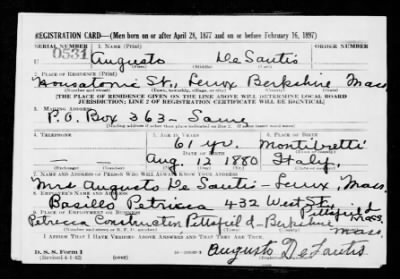 REGISTRATION CARD—(Men born on or after April 28, 1877 and on or before February 16, 1897)
SERIAL NUMBER 1. NAME (Print)
0531 Augusto De Santis
(First) (Middle) (Last)
2. PLACE OF RESIDENCE (Print)
Housatonic St., Lenox Berkshire Mass.
(Number and street) (Town, township, village, or city) (County) (State)
[THE PLACE OF RESIDENCE GIVEN ON THE LINE ABOVE WILL DETERMINE LOCAL BOARD
JURISDICTION; LINE 2 OF REGISTRATION CERTIFICATE WILL BE IDENTICAL]
3. MAILING ADDRESS
P.O. Box 363 – Same
(Mailing address if other than place indicated on line 2. If same insert word same)
4. TELEPHONE 5. AGE IN YEARS 6. PLACE OF BIRTH
61 yr. Montibretti
DATE OF BIRTH (Town or county)
Aug. 12 1880 Italy.
(Exchange) (Number) (Mo.) (Day) (Yr.) (State or country)
7. NAME AND ADDRESS OF PERSON WHO WILL ALWAYS KNOW YOUR ADDRESS
Mrs Augusto De Santis – Lenox, Mass.
8. EMPLOYER'S NAME AND ADDRESS
Basilio Petricca 432 West St., Pittsfield Mass.
9. PLACE OF EMPLOYMENT OR BUSINESS
Petricca Construction Pittsfield – Berkshire Mass.
(Number and street or R. F. D. number) (Town) (County) (State)
I AFFIRM THAT I HAVE VERIFIED ABOVE ANSWERS AND THAT THEY ARE TRUE.
D. S. S. Form 1
(Revised 4-1-42) (over) Augusto De Santis